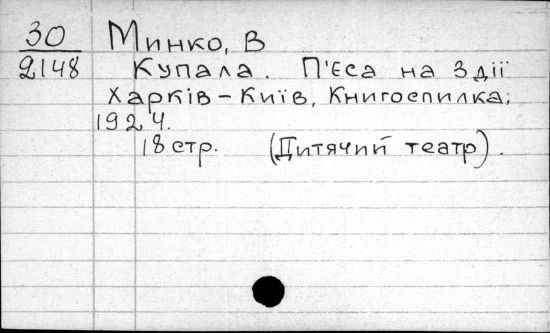 30
2148
Минко, В
Купала. П'єса на 3 дії
Харків - Київ, Книгоспилка,
1924.
18 стр. (Дитячий театр).